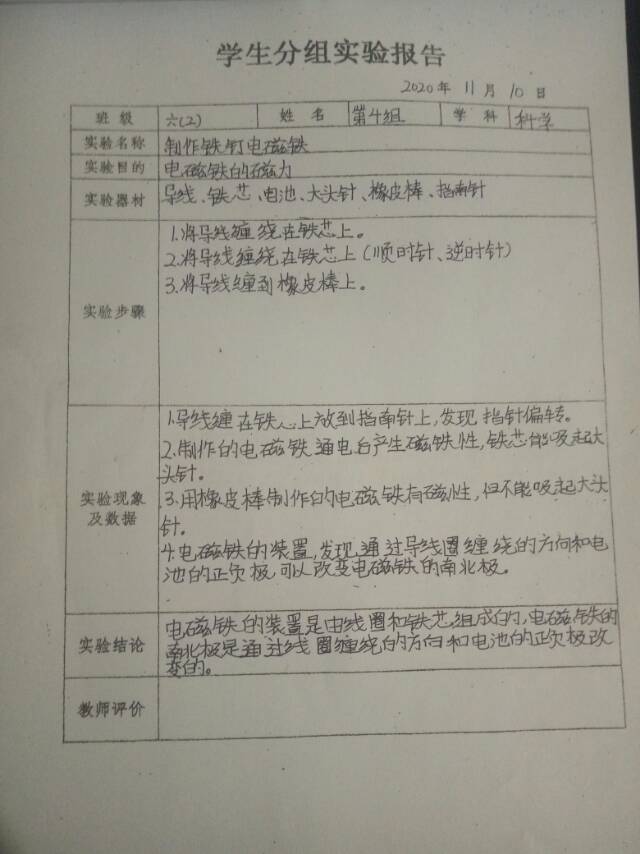 学生分组实验报告
2020年 11月 10日
班级 六(2) 姓名 第4组 学科 科学
实验名称 制作铁钉电磁铁
实验目的 电磁铁的磁力
实验器材 导线、铁芯、电池、大头针、橡皮棒、指南针
实验步骤
1.将导线缠绕在铁芯上。
2.将导线缠绕在铁芯上(顺时针、逆时针)
3.将导线缠到橡皮棒上。
实验现象及数据
1.导线缠在铁心上放到指南针上,发现指针偏转。
2.制作的电磁铁通电后产生磁铁性,铁芯能吸起大
头针。
3.用橡皮棒制作的电磁铁有磁性,但不能吸起大头
针。
4.电磁铁的装置,发现通过导线圈缠绕的方向和电
池的正负极,可以改变电磁铁的南北极。
实验结论
电磁铁的装置是由线圈和铁芯组成的,电磁铁的
南北极是通过线圈缠绕的方向和电池的正负极改
变的。
教师评价